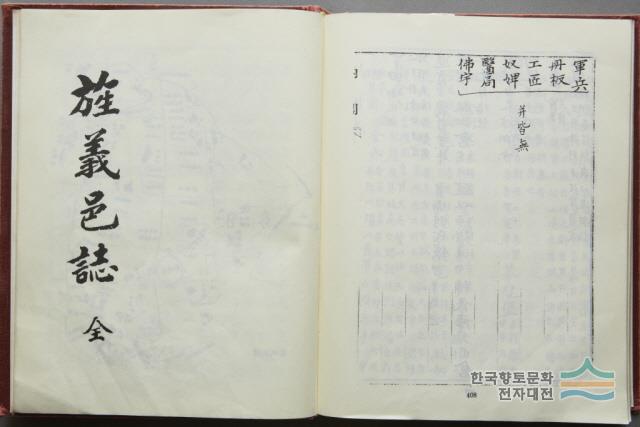 旌義邑誌
全
軍兵
冊板
工匠
奴婢
醫局
佛宇
并皆無
408
한국향토문화
전자대전